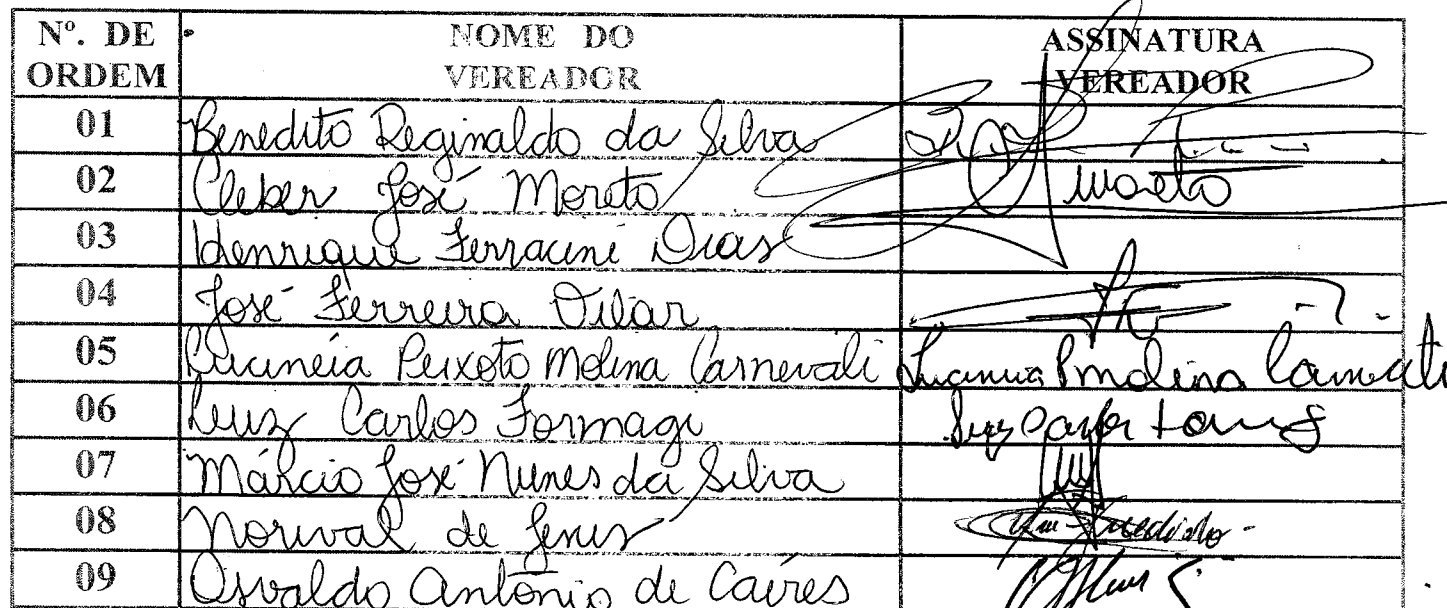 Nº. DE ORDEM NOME DO VEREADOR ASSINATURA VEREADOR
01 Benedito Reginaldo da Silva
02 Cleber José Moreto Moreto
03 Henrique Ferracini Dias
04 José Ferreira Vilar
05 Lucinéia Peixoto Molina Carnevali Lucineia P Molina Carnevali
06 Luiz Carlos Formagi Luiz Carlos
07 Márcio José Nunes da Silva
08 Norival de Jesus
09 Osvaldo Antônio de Caires